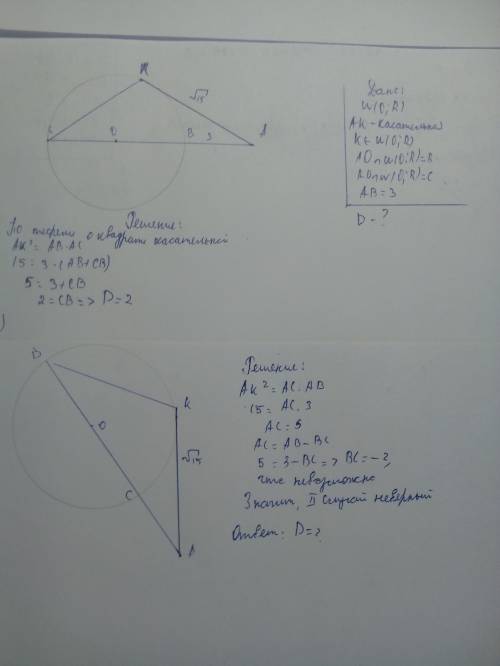 K
√15
C
O
B
3
A
Дано:
w(O;R)
AK - касательная
K ∈ w(O;R)
AO ∩ w(O;R) = B
AO ∩ w(O;R) = C
AB = 3
D - ?
Решение:
По теореме о квадрате касательной
AK² = AB·AC
15 = 3·(AB+CB)
5 = 3+CB
2 = CB => D = 2
)
B
K
O
√15
C
A
Решение:
AK² = AC·AB
15 = AC·3
AC = 5
AC = AB - BC
5 = 3 - BC => BC = -2,
что невозможно
Значит, II случай неверный
Ответ: D = 2